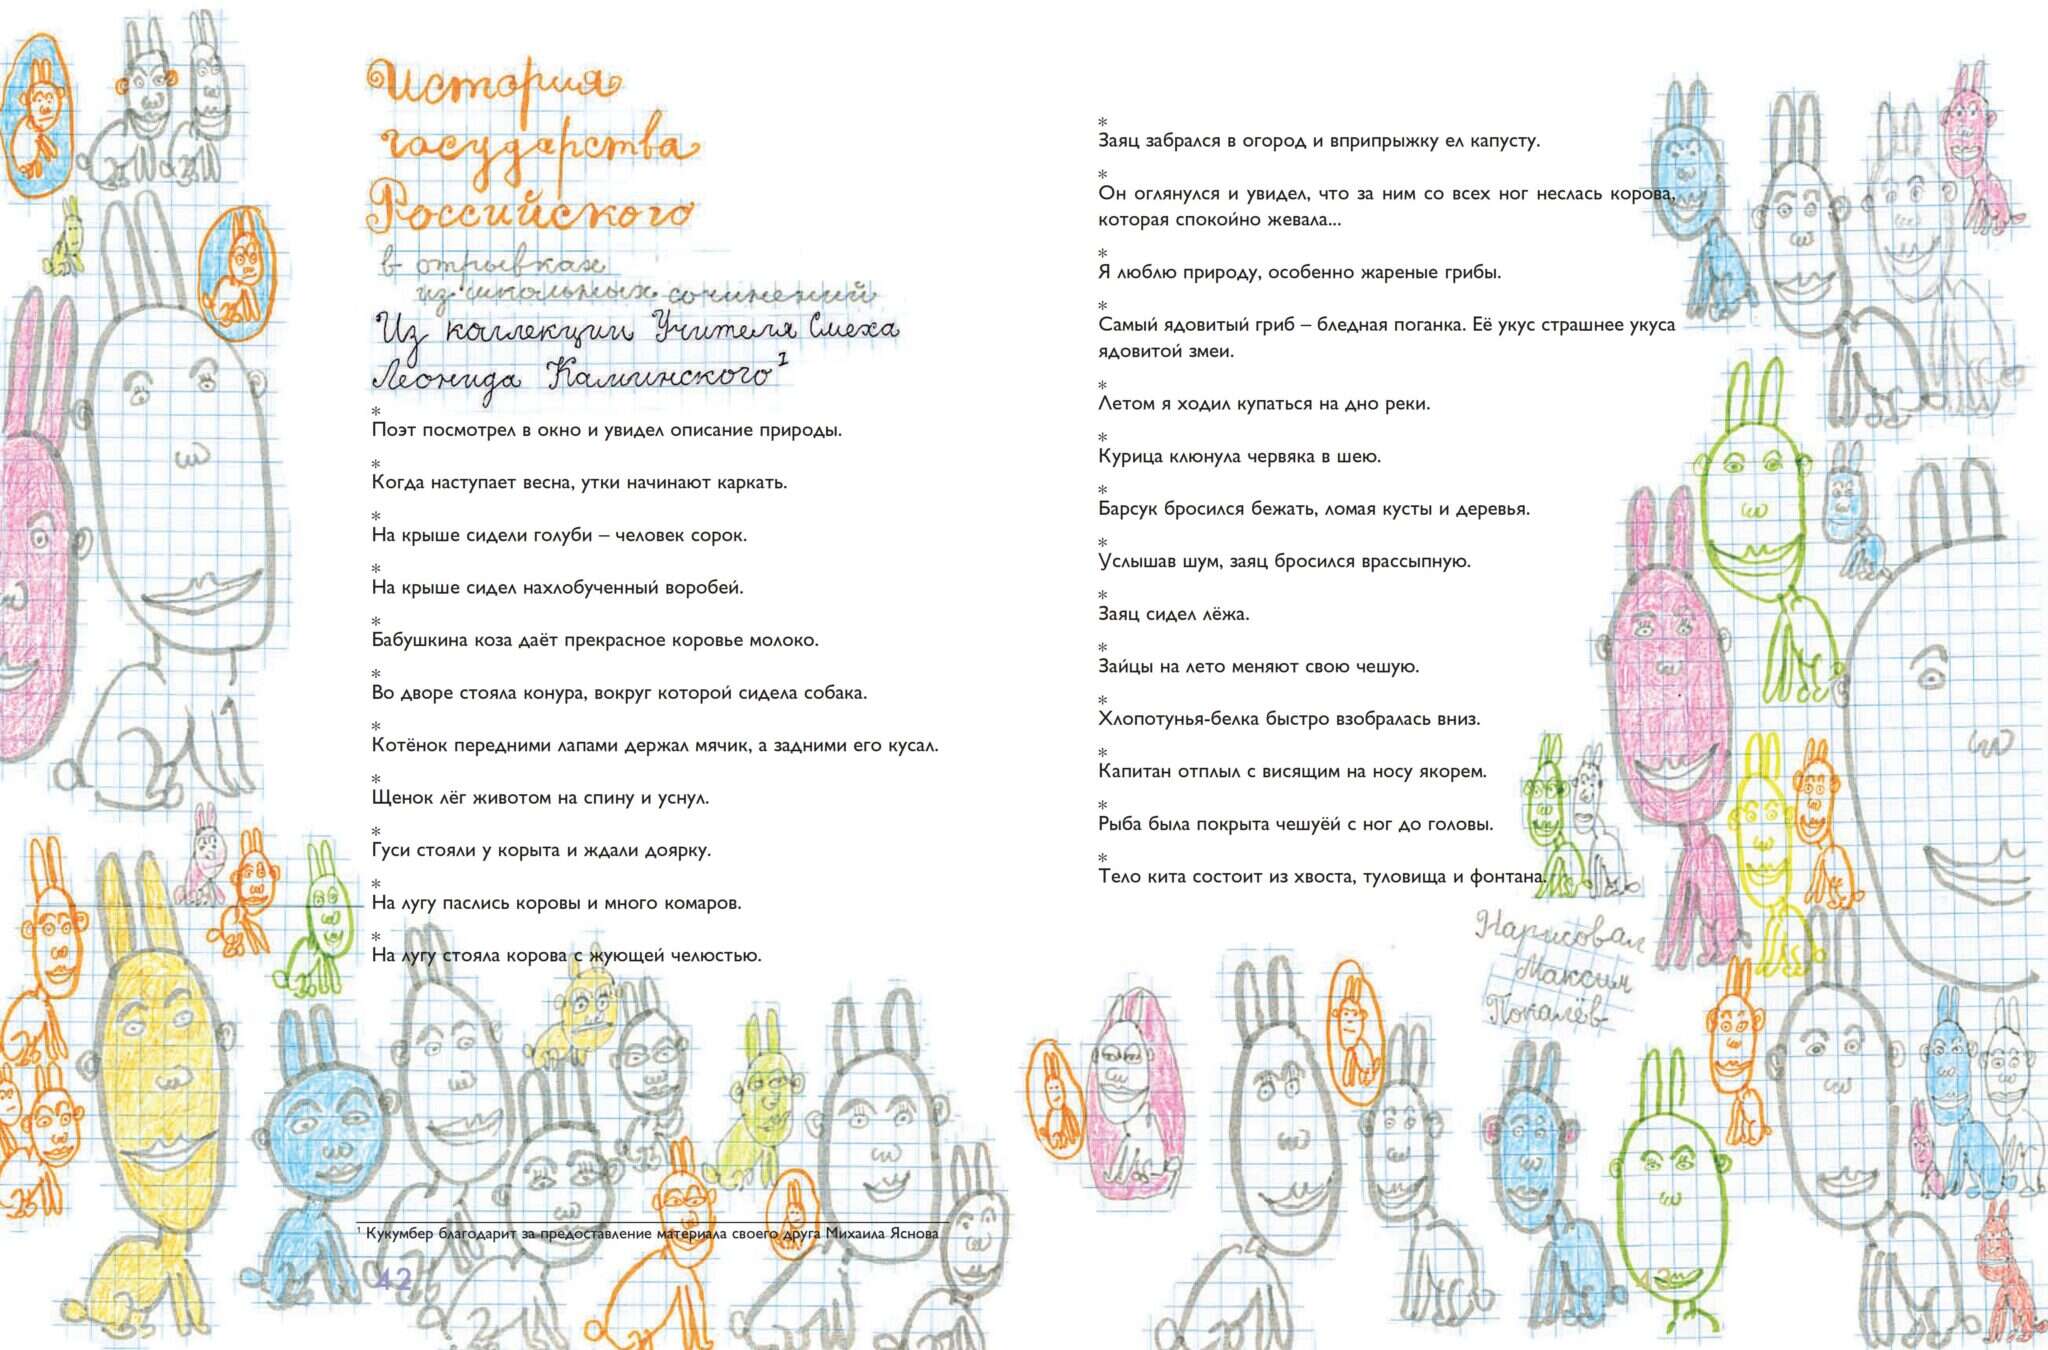 История
государства
Российского
в отрывках
из школьных сочинений
Из коллекции Учителя Смеха
Леонида Каминского¹
*
Поэт посмотрел в окно и увидел описание природы.
*
Когда наступает весна, утки начинают каркать.
*
На крыше сидели голуби – человек сорок.
*
На крыше сидел нахлобученный воробей.
*
Бабушкина коза даёт прекрасное коровье молоко.
*
Во дворе стояла конура, вокруг которой сидела собака.
*
Котёнок передними лапами держал мячик, а задними его кусал.
*
Щенок лёг животом на спину и уснул.
*
Гуси стояли у корыта и ждали доярку.
*
На лугу паслись коровы и много комаров.
*
На лугу стояла корова с жующей челюстью.
¹ Кукумбер благодарит за предоставление материала своего друга Михаила Яснова
42
*
Заяц забрался в огород и вприпрыжку ел капусту.
*
Он оглянулся и увидел, что за ним со всех ног неслась корова,
которая спокойно жевала...
*
Я люблю природу, особенно жареные грибы.
*
Самый ядовитый гриб – бледная поганка. Её укус страшнее укуса
ядовитой змеи.
*
Летом я ходил купаться на дно реки.
*
Курица клюнула червяка в шею.
*
Барсук бросился бежать, ломая кусты и деревья.
*
Услышав шум, заяц бросился врассыпную.
*
Заяц сидел лёжа.
*
Зайцы на лето меняют свою чешую.
*
Хлопотунья-белка быстро взобралась вниз.
*
Капитан отплыл с висящим на носу якорем.
*
Рыба была покрыта чешуёй с ног до головы.
*
Тело кита состоит из хвоста, туловища и фонтана.
Нарисовал
Максим
Покалёв
43